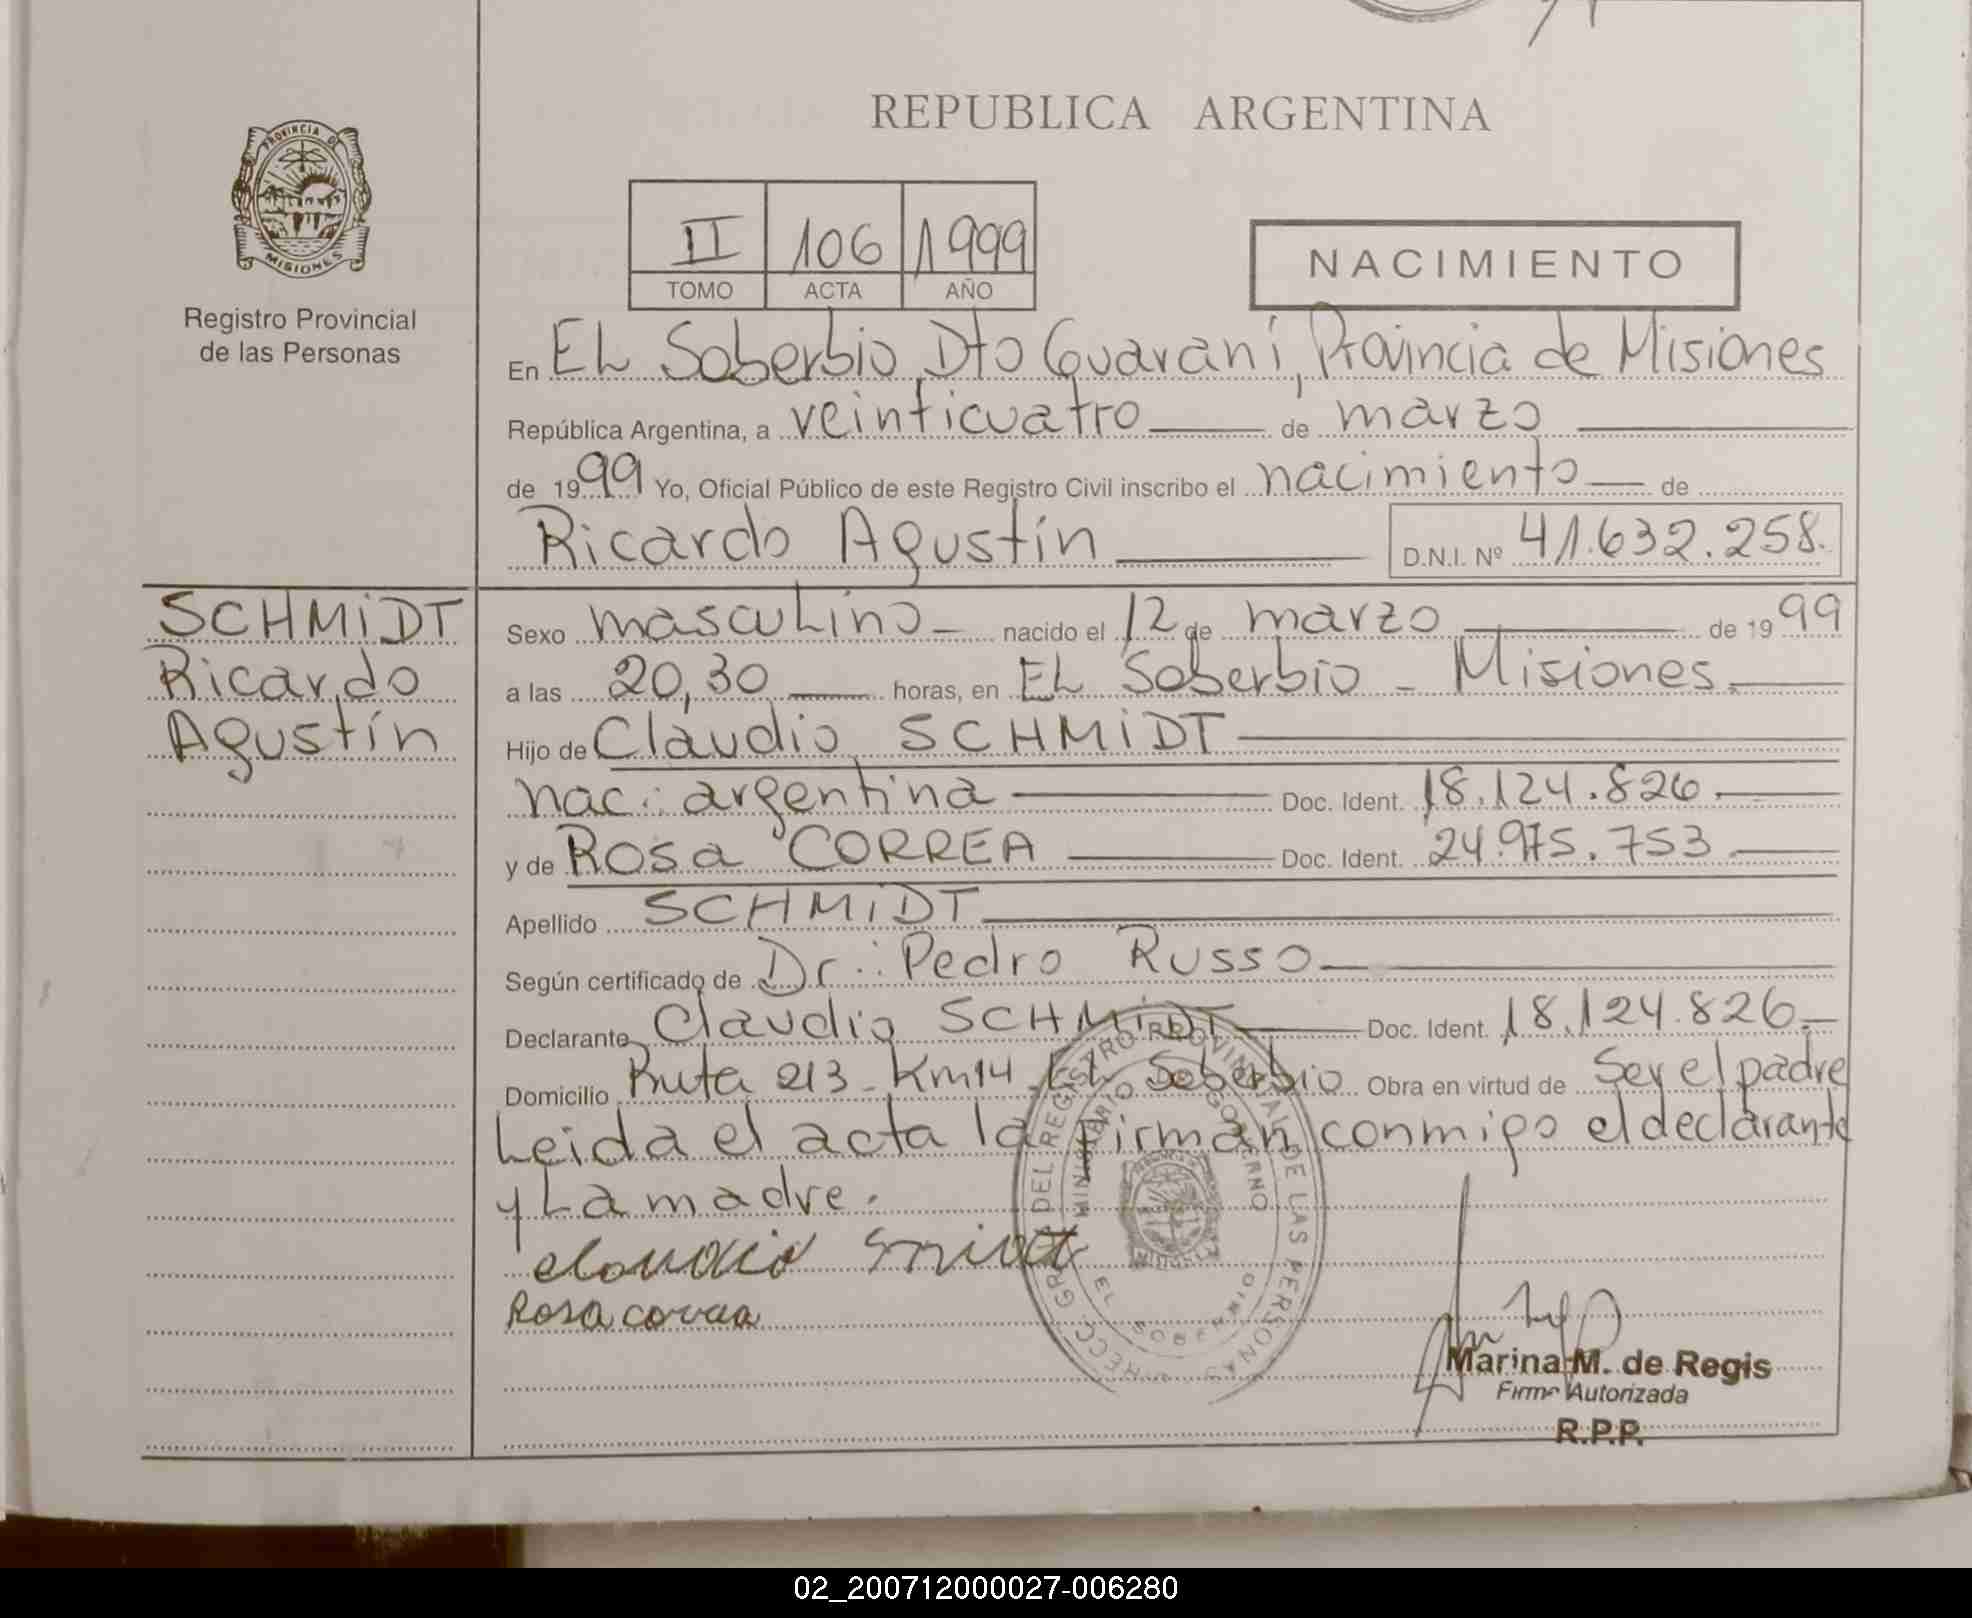 REPUBLICA ARGENTINA
PROVINCIA DE
MISIONES
Registro Provincial
de las Personas
II 106 1999
TOMO ACTA AÑO
NACIMIENTO
En EL Soberbio, Dto Guaraní, Provincia de Misiones
República Argentina, a veinticuatro de marzo
de 1999 Yo, Oficial Público de este Registro Civil inscribo el nacimiento de
Ricardo Agustín D.N.I. Nº 41.632.258.
SCHMiDT
Ricardo
Agustín
Sexo masculino nacido el 12 de marzo de 1999
a las 20,30 horas, en EL Soberbio - Misiones.
Hijo de Claudio SCHMiDT
nac: argentina Doc. Ident. 18.124.826.
y de Rosa CORREA Doc. Ident. 24.975.753.
Apellido SCHMiDT
Según certificado de Dr.: Pedro Russo
Declarante Claudio SCHMiDT Doc. Ident. 18.124.826.
Domicilio Ruta 213 - Km14. EL Soberbio Obra en virtud de Ser el padre
Leida el acta la firman conmigo el declarante
y La madre.
Rosa correa
DEL REGISTRO PROVINCIAL DE LAS PERSONAS
MINISTERIO DE GOBIERNO
EL SOBERBIO
Marina M. de Regis
Firma Autorizada
R.P.P.
02_200712000027-006280